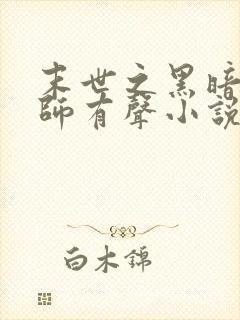 末世之黑暗
師有聲小說
白木錦